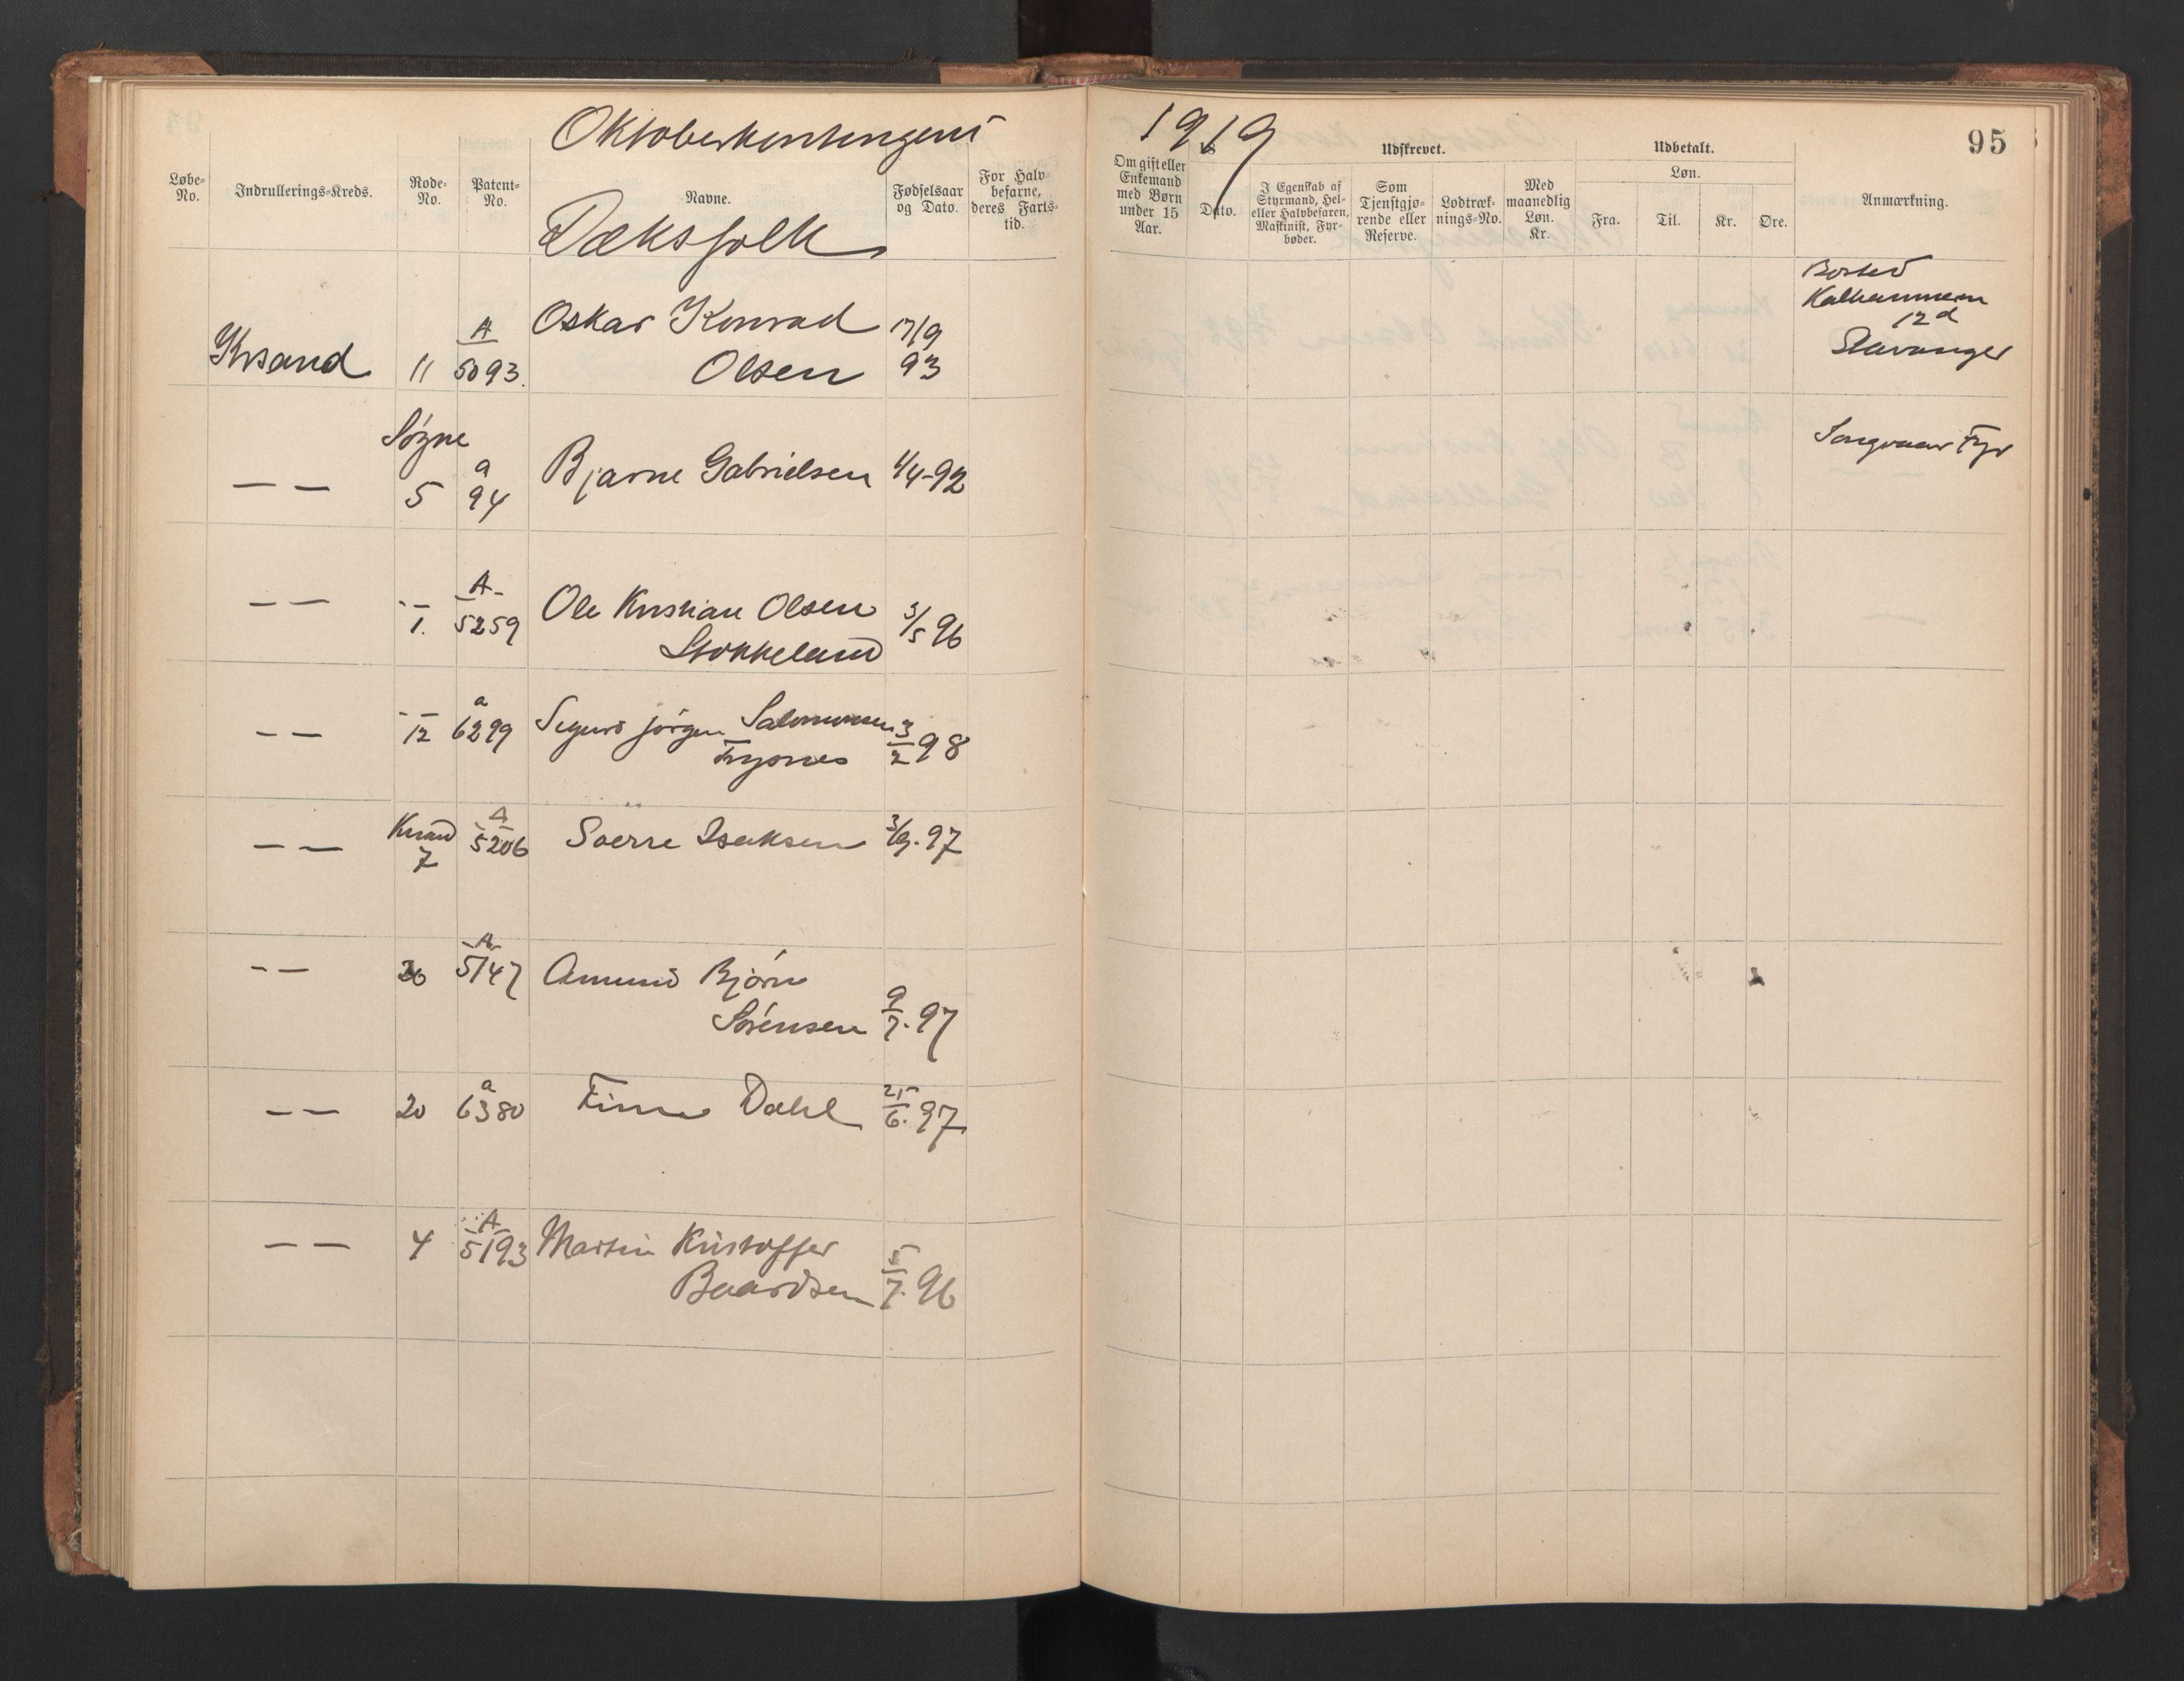 Oktoberkontingent 1919
95
Løbe-No.
Indrullerings-Kreds.
Rode-No.
Patent-No.
Navne.
Fødselsaar og Dato.
For Halvbefarne, deres Fartstid.
Om gift eller Enkemand med Børn under 15 Aar.
Udskrevet.
Dato.
I Egenskab af Styrmand, Hel- eller Halvbefaren, Maskinist, Fyrbøder.
Som Tjenstgjørende eller Reserve.
Lodtræknings-No.
Med maanedlig Løn. Kr.
Udbetalt.
Løn.
Fra.
Til.
Kr.
Øre.
Anmærkning.
Dæksfolk
Krsand 11 A 5093. Oskar Konrad Olsen 17/9 93
Bosted
Kalhammeren
12d
Stavanger
— — Søgne 5 a 94 Bjarne Gabrielsen 1/4-92
Songvaar Fyr
— — -"- 1. A 5259 Ole Kristian Olsen Stokkeland 3/5 96
— — -"- 12 a 6299 Sigurd Jørgen Salomonsen 3/2 98
— — Krsand 7 A 5206 Sverre Isaksen 3/9. 97
— — 20 A 5147 Amund Bjørn Sørensen 9/7. 97
— — 20 a 6380 Finn Dahl 25/6. 97
— — 4 A 5193 Martin Kristoffer Baardsen 5/7. 96